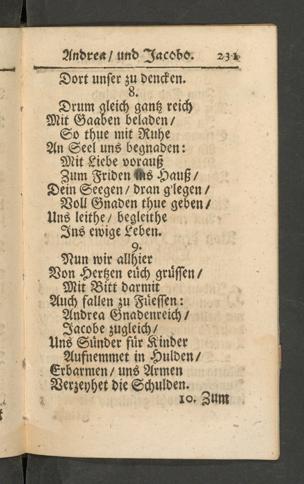 Andrea/ und Jacobo. 231
Dort unser zu dencken.
8.
Drum gleich gantz reich
Mit Gaaben beladen/
So thue mit Ruhe
An Seel uns begnaden:
Mit Liebe vorauß
Zum Friden ins Hauß/
Dein Seegen/ dran g'legen/
Voll Gnaden thue geben/
Uns leithe/ begleithe
Ins ewige Leben.
9.
Nun wir allhier
Von Hertzen eüch grüssen/
Mit Bitt darmit
Auch fallen zu Füessen:
Andrea Gnadenreich/
Jacobe zugleich/
Uns Sünder für Kinder
Aufnemmet in Hulden/
Erbarmen/ uns Armen
Verzeyhet die Schulden.
10. Zum